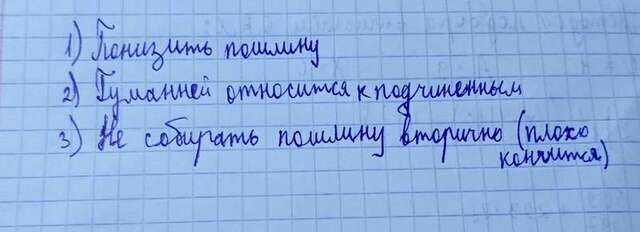 1) Понизить пошлину
2) Гуманней относится к подчиненным
3) Не собирать пошлину вторично (плохо
кончится)